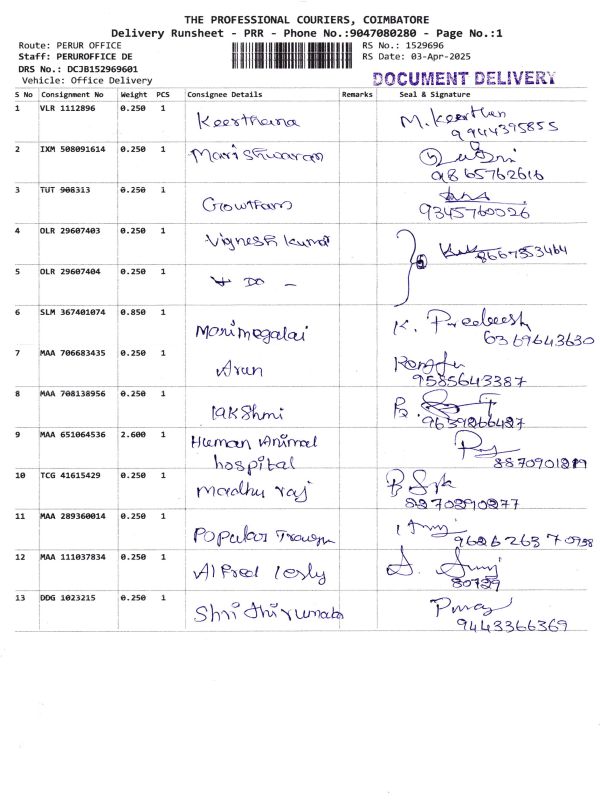 THE PROFESSIONAL COURIERS, COIMBATORE
Delivery Runsheet - PRR - Phone No.:9047080280 - Page No.:1
Route: PERUR OFFICE RS No.: 1529696
Staff: PERUROFFICE DE RS Date: 03-Apr-2025
DRS No.: DCJB152969601
Vehicle: Office Delivery DOCUMENT DELIVERY
S No Consignment No Weight PCS Consignee Details Remarks Seal & Signature
1 VLR 1112896 0.250 1 Keerthana M. Keerthan
9944395855
2 IXM 508091614 0.250 1 Marishwaran
9865762616
3 TUT 908313 0.250 1 Gowtham
9345760026
4 OLR 29607403 0.250 1 Vignesh kumar
8667553464
5 OLR 29607404 0.250 1 DO -
6 SLM 367401074 0.850 1 Marimegalai K. Preebeesh
6369643630
7 MAA 706683435 0.250 1 Arun
9585643387
8 MAA 708138956 0.250 1 lakshmi B.
9 MAA 651064536 2.600 1 Human Animal
hospital
10 TCG 41615429 0.250 1 madhu raj
8270290277
11 MAA 289360014 0.250 1 Popular
12 MAA 111037834 0.250 1 Alfred lesly
13 DDG 1023215 0.250 1 Shri
9443366369